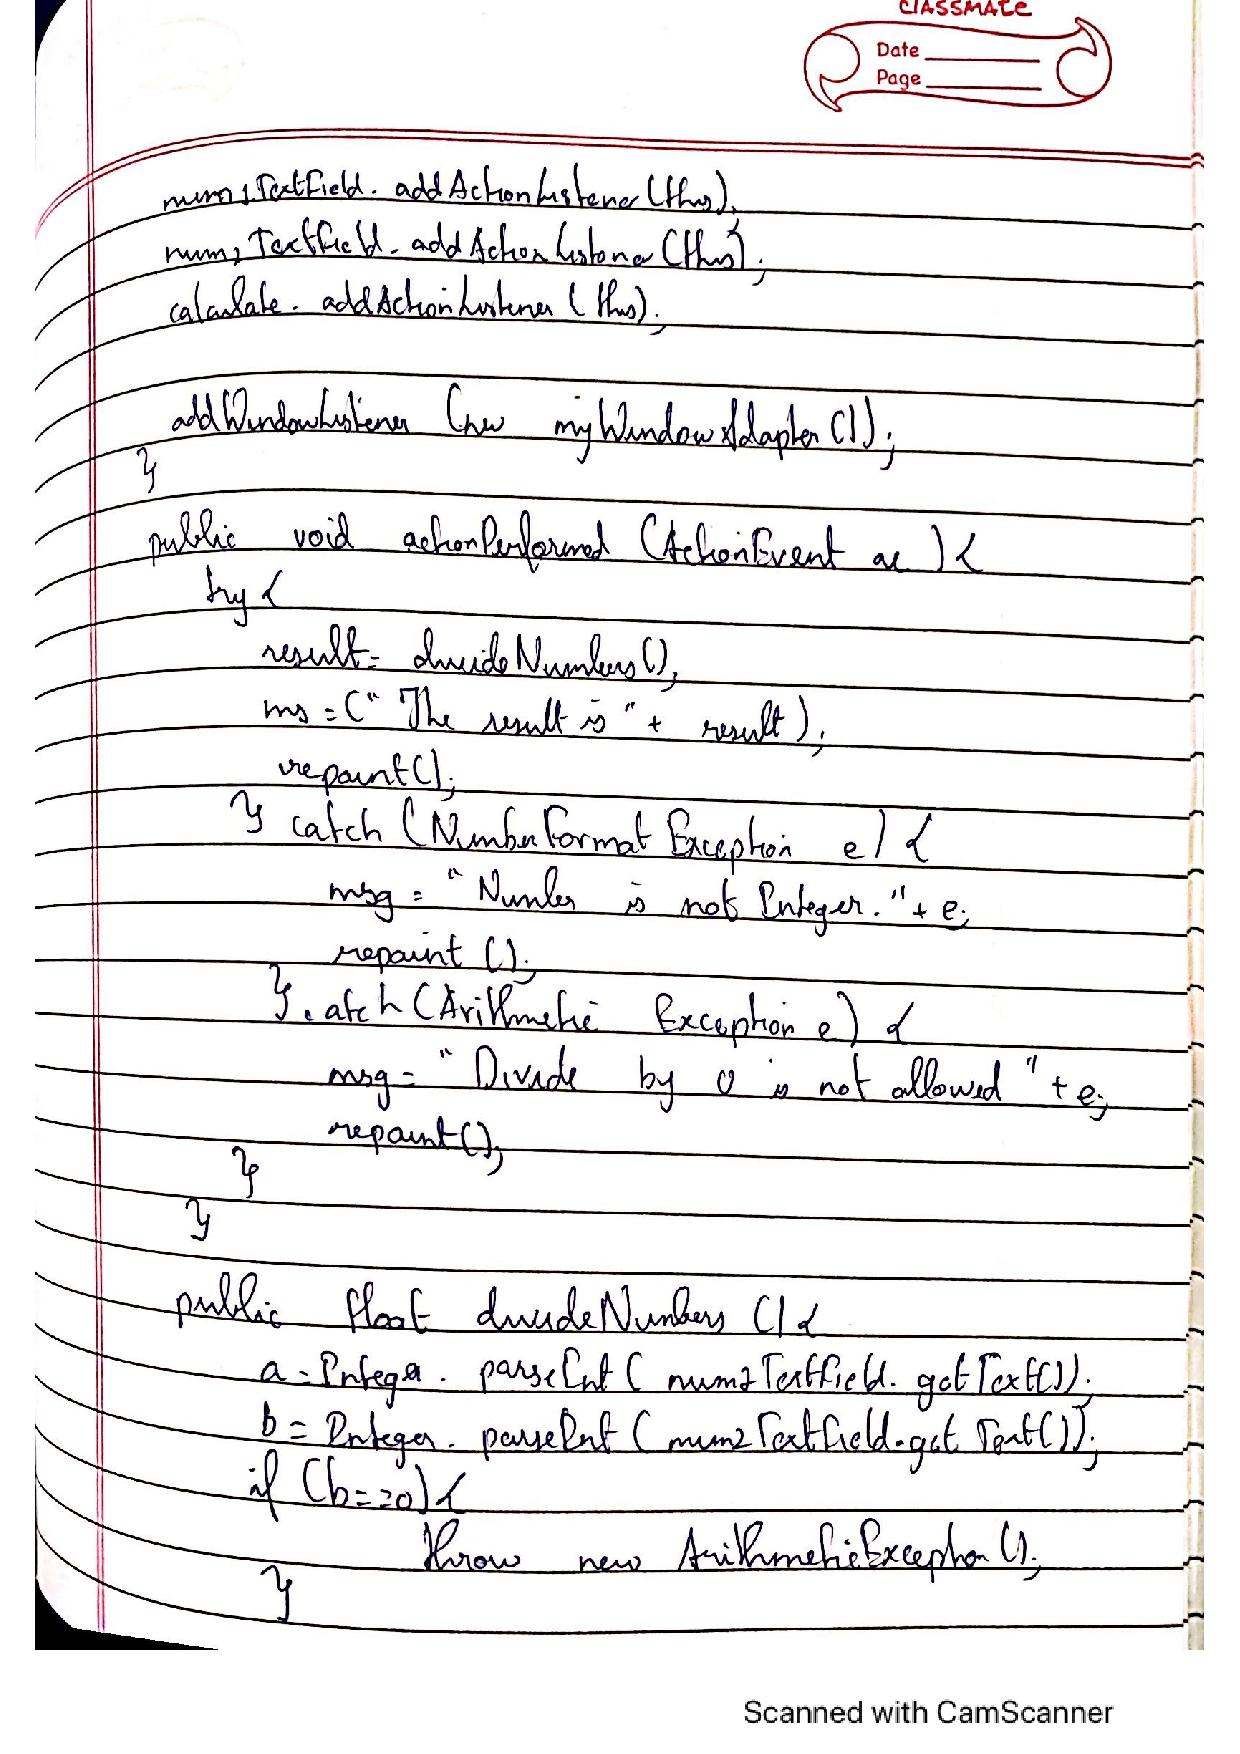 classmate
Date
Page
num1TextField.addActionListener(this);
num2TextField.addActionListener(this);
calculate.addActionListener(this);
addWindowListener(new myWindowAdapter());
}
public void actionPerformed (ActionEvent ae) {
try {
result = divideNumbers();
ms = (" The result is " + result);
repaint();
} catch (NumberFormat Exception e) {
msg = " Number is not Integer. " + e;
repaint ();
} catch (Arithmetic Exception e) {
msg = " Divide by 0 is not allowed " + e;
repaint();
}
}
public float divideNumbers () {
a = Integer. parseInt ( num1TextField. getText());
b = Integer. parseInt ( num2TextField.get Text());
if (b==0) {
throw new ArithmeticException ();
}
Scanned with CamScanner